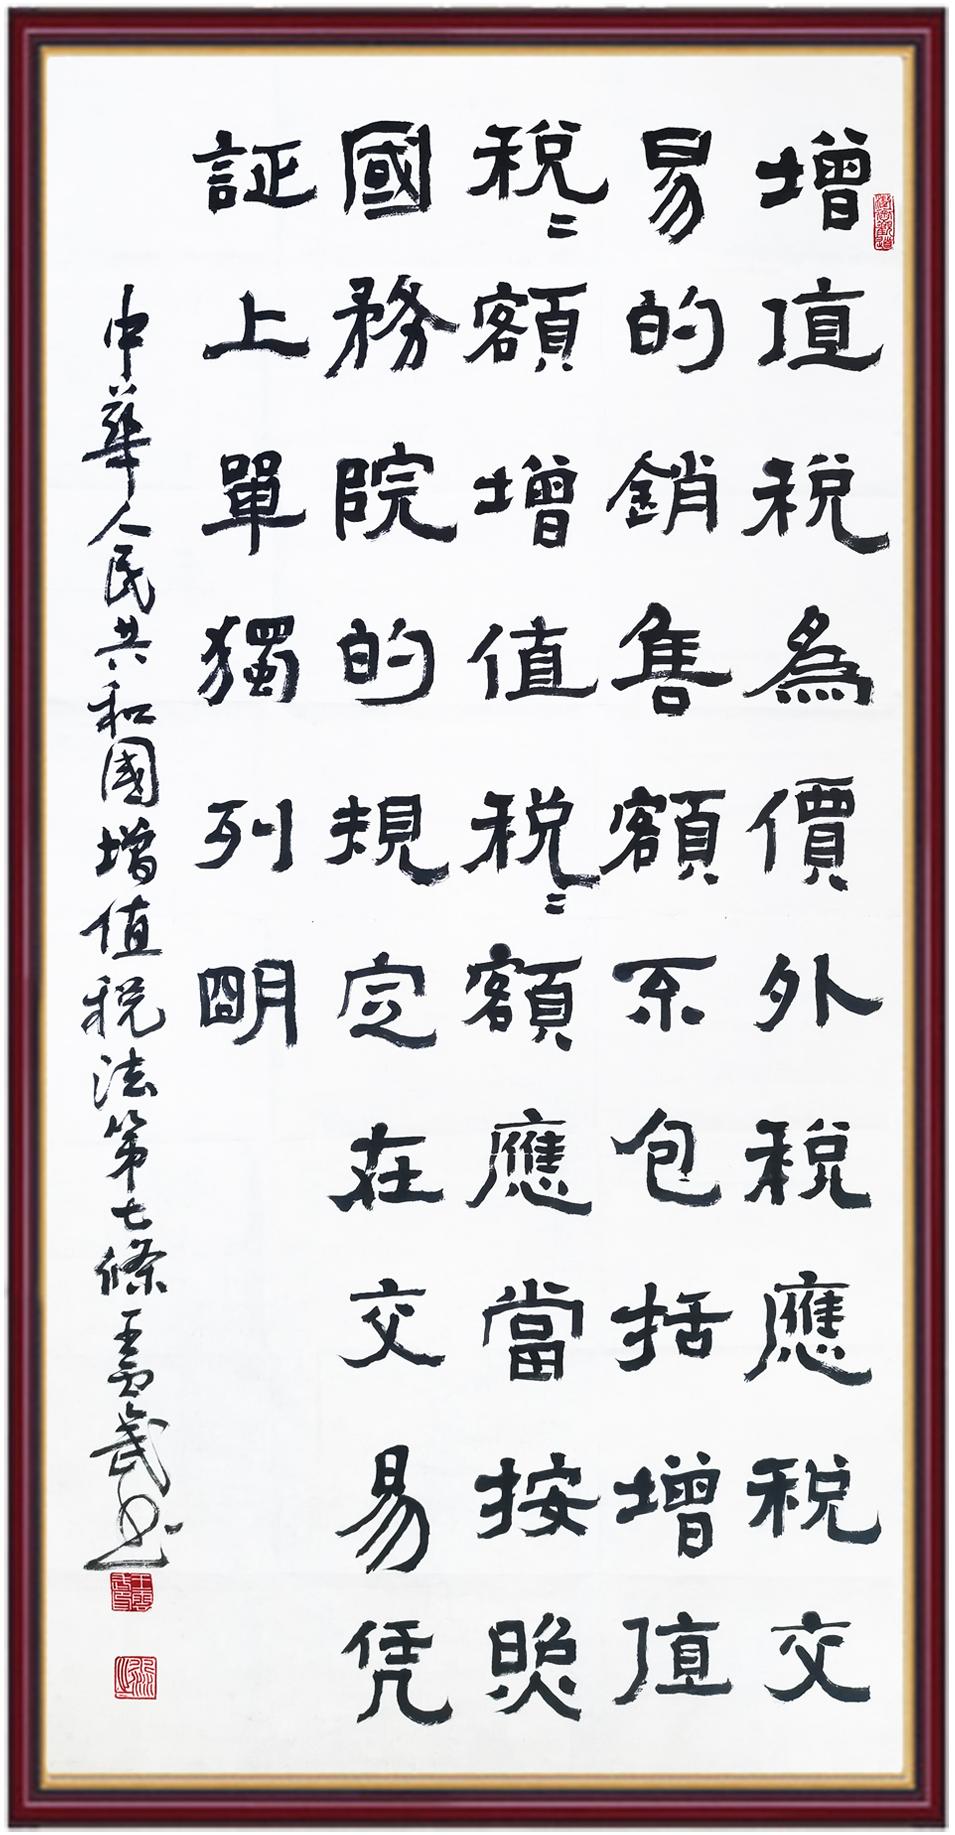 增值税為價外税應税交
易的銷售額不包括增值
税〻額增值税〻額應當按照
國務院的規定在交易凭
証上單獨列明
中華人民共和國增值税法第七條 王武书